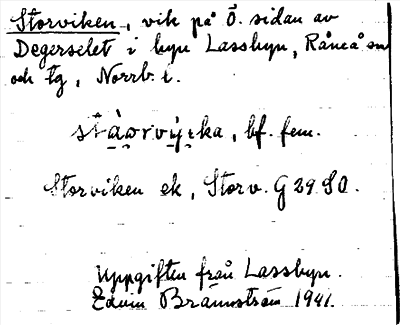 Storviken, vik på Ö. sidan av
Degerselet i byn Lassbyn, Råneå sn
och tg, Norrb. l.
stàorvýıka, bf. fem.
Storviken ek, Storv. G 29.SO.
Uppgiften från Lassbyn.
Edvin Brännström 1941.